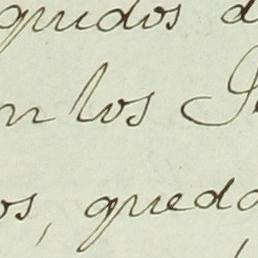 quidos d
n los S
os, queda